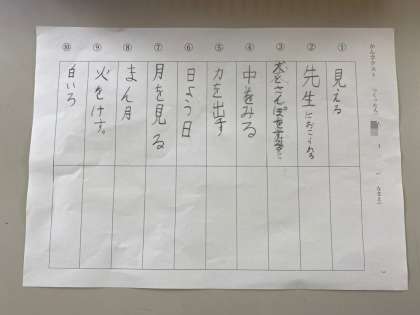 かん字テスト
①
見える
②
先生におこられる
③
犬とさんぽをする。
④
中をみる
⑤
力を出す
⑥
日よう日
⑦
月を見る
⑧
まん月
⑨
火をけす。
⑩
白いろ